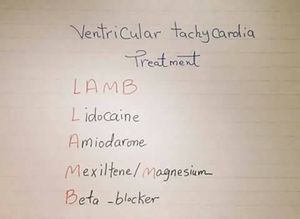 Ventricular tachycardia
Treatment
LAMB
Lidocaine
Amiodarone
Mexiltene/Magnesium
Beta-blocker